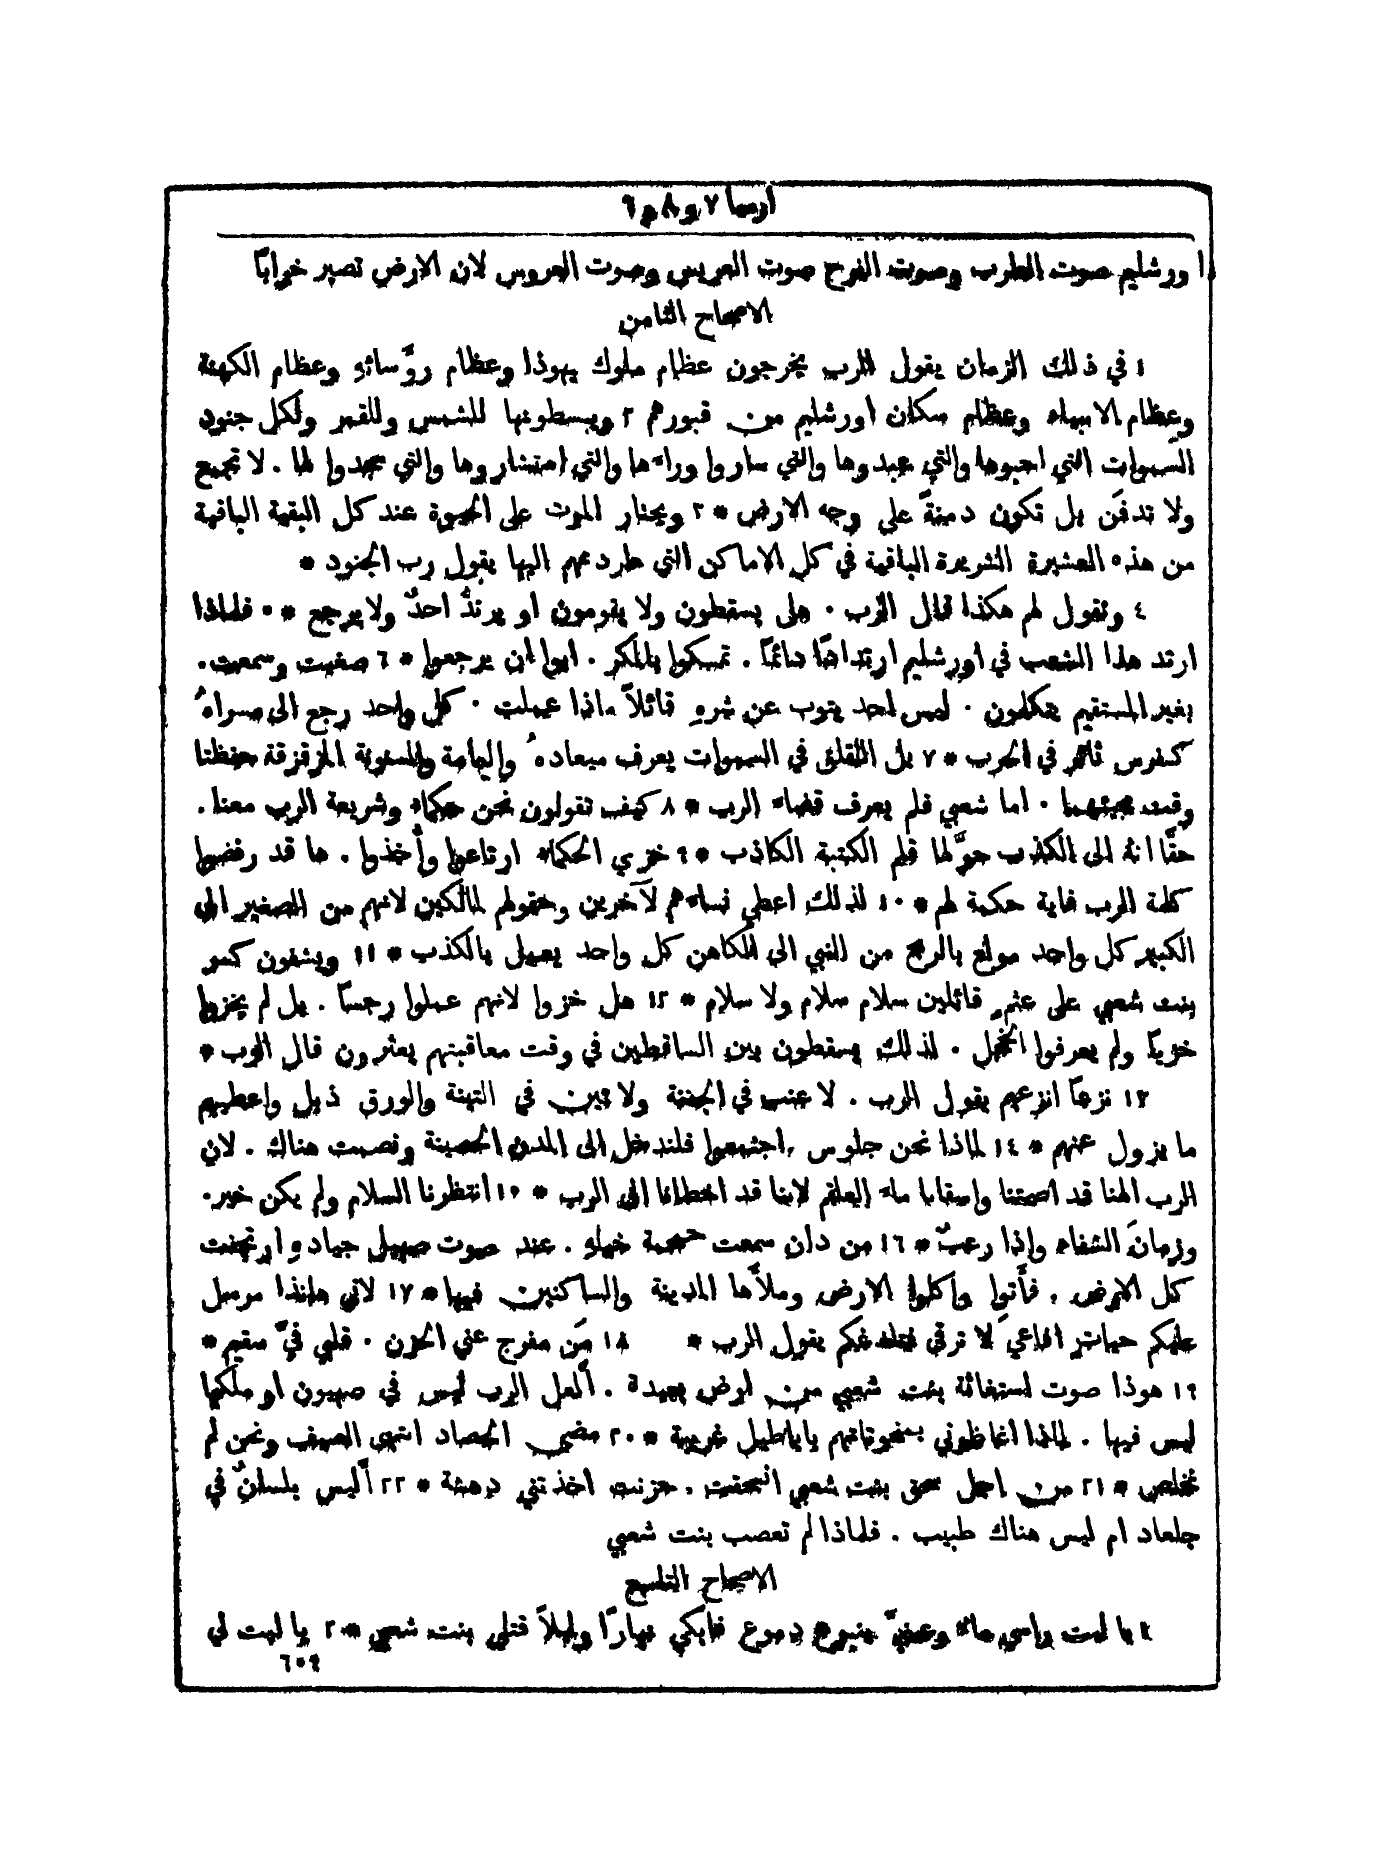 ارميا ٧ و ٨ و ٩
اورشليم صوت الطرب وصوت الفرح صوت العريس وصوت العروس لان الارض تصير خرابًا
الاصحاح الثامن
١ في ذلك الزمان يقول الرب يخرجون عظام ملوك يهوذا وعظام روَّسائهِ وعظام الكهنة
وعظام الانبياء وعظام سكان اورشليم من قبورهم ٢ ويبسطونها للشمس وللقمر ولكل جنود
السموات التي احبوها والتي عبدوها والتي ساروا وراءَها والتي استشاروها والتي سجدوا لها . لا تجمع
ولا تدفَن بل تكون دمنةً على وجه الارض * ٣ ويختار الموت على الحيوة عند كل البقية الباقية
من هذه العشيرة الشريرة الباقية في كل الاماكن التي طردتهم اليها يقول رب الجنود *
٤ وتقول لهم هكذا قال الرب . هل يسقطون ولا يقومون او يرتدُّ احدٌ ولا يرجع * ٥ فلماذا
ارتد هذا الشعب في اورشليم ارتدادًا دائمًا . تمسكوا بالمكر . ابوا ان يرجعوا * ٦ صغيت وسمعت .
بغير المستقيم يتكلمون . ليس احد يتوب عن شرهِ قائلاً ماذا عملت . كل واحد رجع الى مسراهُ
كفرس ثائر في الحرب * ٧ بل اللقلق في السموات يعرف ميعادهُ واليمامة والسنونة المزقزقة حفظتا
وقت مجيئهما . اما شعبي فلم يعرف قضاءَ الرب * ٨ كيف تقولون نحن حكماء وشريعة الرب معنا .
حقًّا انهُ الى الكذب حوَّلها قلم الكتبة الكاذب * ٩ خزي الحكماء ارتاعوا وأُخذوا . ها قد رفضوا
كلمة الرب فاية حكمة لهم * ١٠ لذلك اعطي نساءَهم لآخرين وحقولهم لمالكين لانهم من الصغير الى
الكبير كل واحد مولع بالربح من النبي الى الكاهن كل واحد يعمل بالكذب * ١١ ويشفون كسر
بنت شعبي على عثمٍ قائلين سلام سلام ولا سلام * ١٢ هل خزوا لانهم عملوا رجسًا . بل لم يخزوا
خزيًا ولم يعرفوا الخجل . لذلك يسقطون بين الساقطين في وقت معاقبتهم يعثرون قال الرب *
١٣ نزعًا انزعهم يقول الرب . لا عنب في الجفنة ولا تين في التينة والورق ذبل واعطيهم
ما يزول عنهم * ١٤ لماذا نحن جلوس . اجتمعوا فلندخل الى المدن الحصينة ونصمت هناك . لان
الرب الهنا قد اصمتنا واسقانا ماءَ العلقم لاننا قد اخطانا الى الرب * ١٥ انتظرنا السلام ولم يكن خير .
وزمانَ الشفاء واذا رعبٌ * ١٦ من دان سمعت حمحمة خيلهِ . عند صوت صهيل جيادهِ ارتجفت
كل الارض . فأتوا واكلوا الارض وملأَها المدينة والساكنين فيها * ١٧ لاني هانذا مرسل
عليكم حيات افاعيَ لا ترقى فتلدغكم يقول الرب * ١٨ مَن مفرج عني الحزن . قلبي فيَّ سقيم *
١٩ هوذا صوت استغاثة بنت شعبي من ارض بعيدة . أَلعل الرب ليس في صهيون او ملكها
ليس فيها . لماذا اغاظوني بمنحوتاتهم باباطيل غريبة * ٢٠ مضى الحصاد انتهى الصيف ونحن لم
نخلص * ٢١ من اجل سحق بنت شعبي انسحقت . حزنت اخذتني دهشة * ٢٢ أَليس بلسانٌ في
جلعاد ام ليس هناك طبيب . فلماذا لم تعصب بنت شعبي
الاصحاح التاسع
١ يا ليت راسي ماءٌ وعينيَّ ينبوع دموع فابكي نهارًا وليلاً قتلى بنت شعبي * ٢ يا ليت لي
٦٠٩